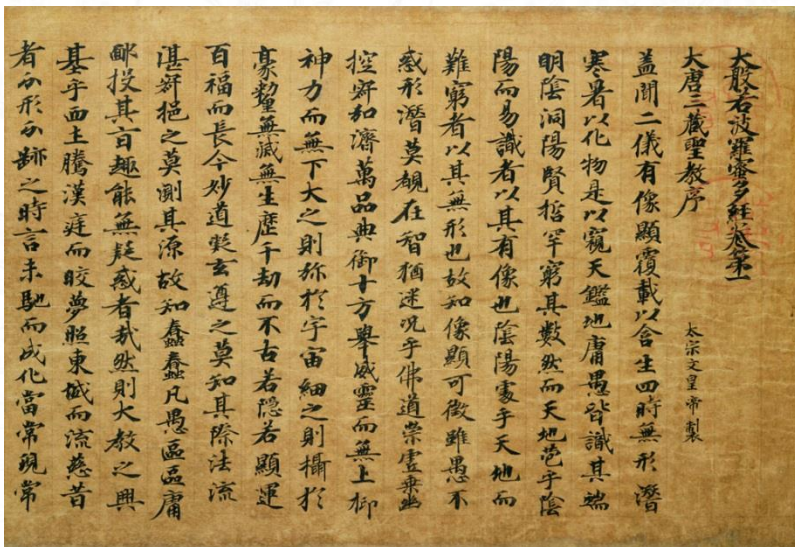 大般若波羅蜜多經卷第一
大唐三藏聖教序
太宗文皇帝製
蓋聞二儀有像顯覆載以含生四時無形潛
寒暑以化物是以窺天鑑地庸愚皆識其端
明陰洞陽賢哲罕窮其數然而天地苞乎陰
陽而易識者以其有像也陰陽處乎天地而
難窮者以其無形也故知像顯可徵雖愚不
惑形潛莫覩在智猶迷況乎佛道崇虛乘幽
控寂弘濟萬品典御十方舉威靈而無上抑
神力而無下大之則弥於宇宙細之則攝於
豪釐無滅無生歷千劫而不古若隱若顯運
百福而長今妙道凝玄遵之莫知其際法流
湛寂挹之莫測其源故知蠢蠢凡愚區區庸
鄙投其旨趣能無疑惑者哉然則大教之興
基乎西土騰漢庭而皎夢照東域而流慈昔
者分形分跡之時言未馳而成化當常現常